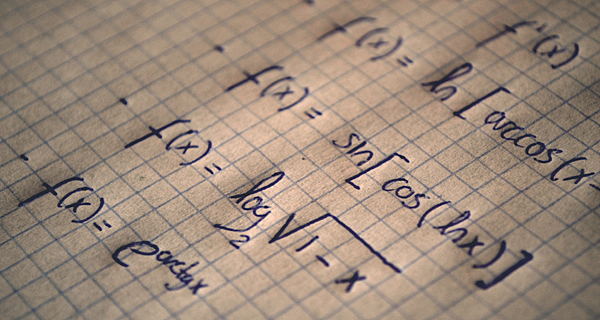 f'(x)
• f(x) = ln [arccos(x-
• f(x) = sin[cos(lnx)]
• f(x) = log₂ √1-x
• f(x) = e^arctgx